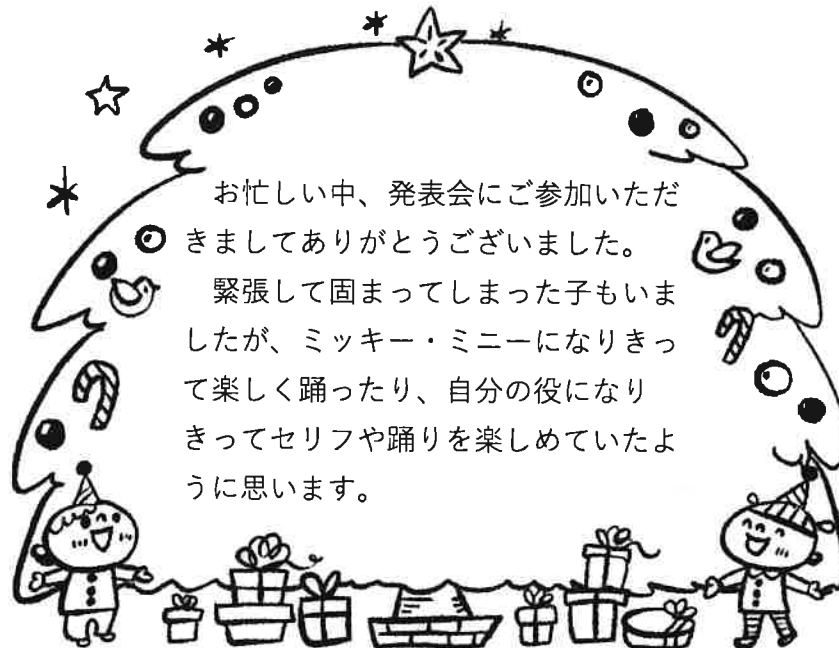 お忙しい中、発表会にご参加いただ
きましてありがとうございました。
　緊張して固まってしまった子もいま
したが、ミッキー・ミニーになりきっ
て楽しく踊ったり、自分の役になり
きってセリフや踊りを楽しめていたよ
うに思います。